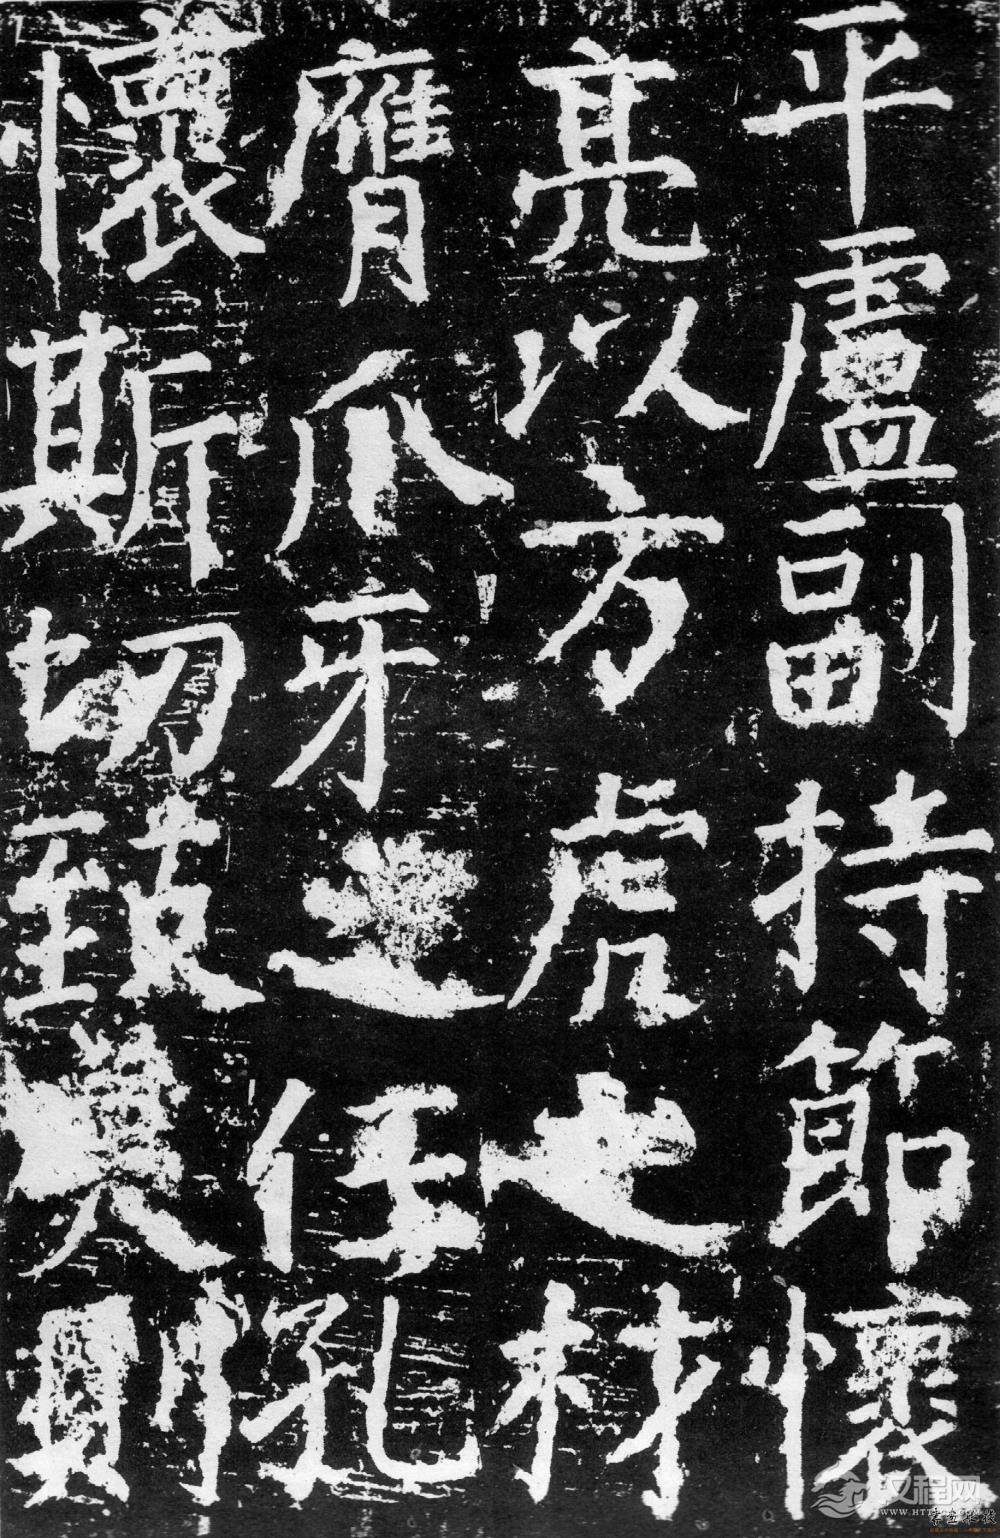 平盧副持節懷
亮以方虎之材
膺爪牙之任孔
懷斯切致美則
汉程网